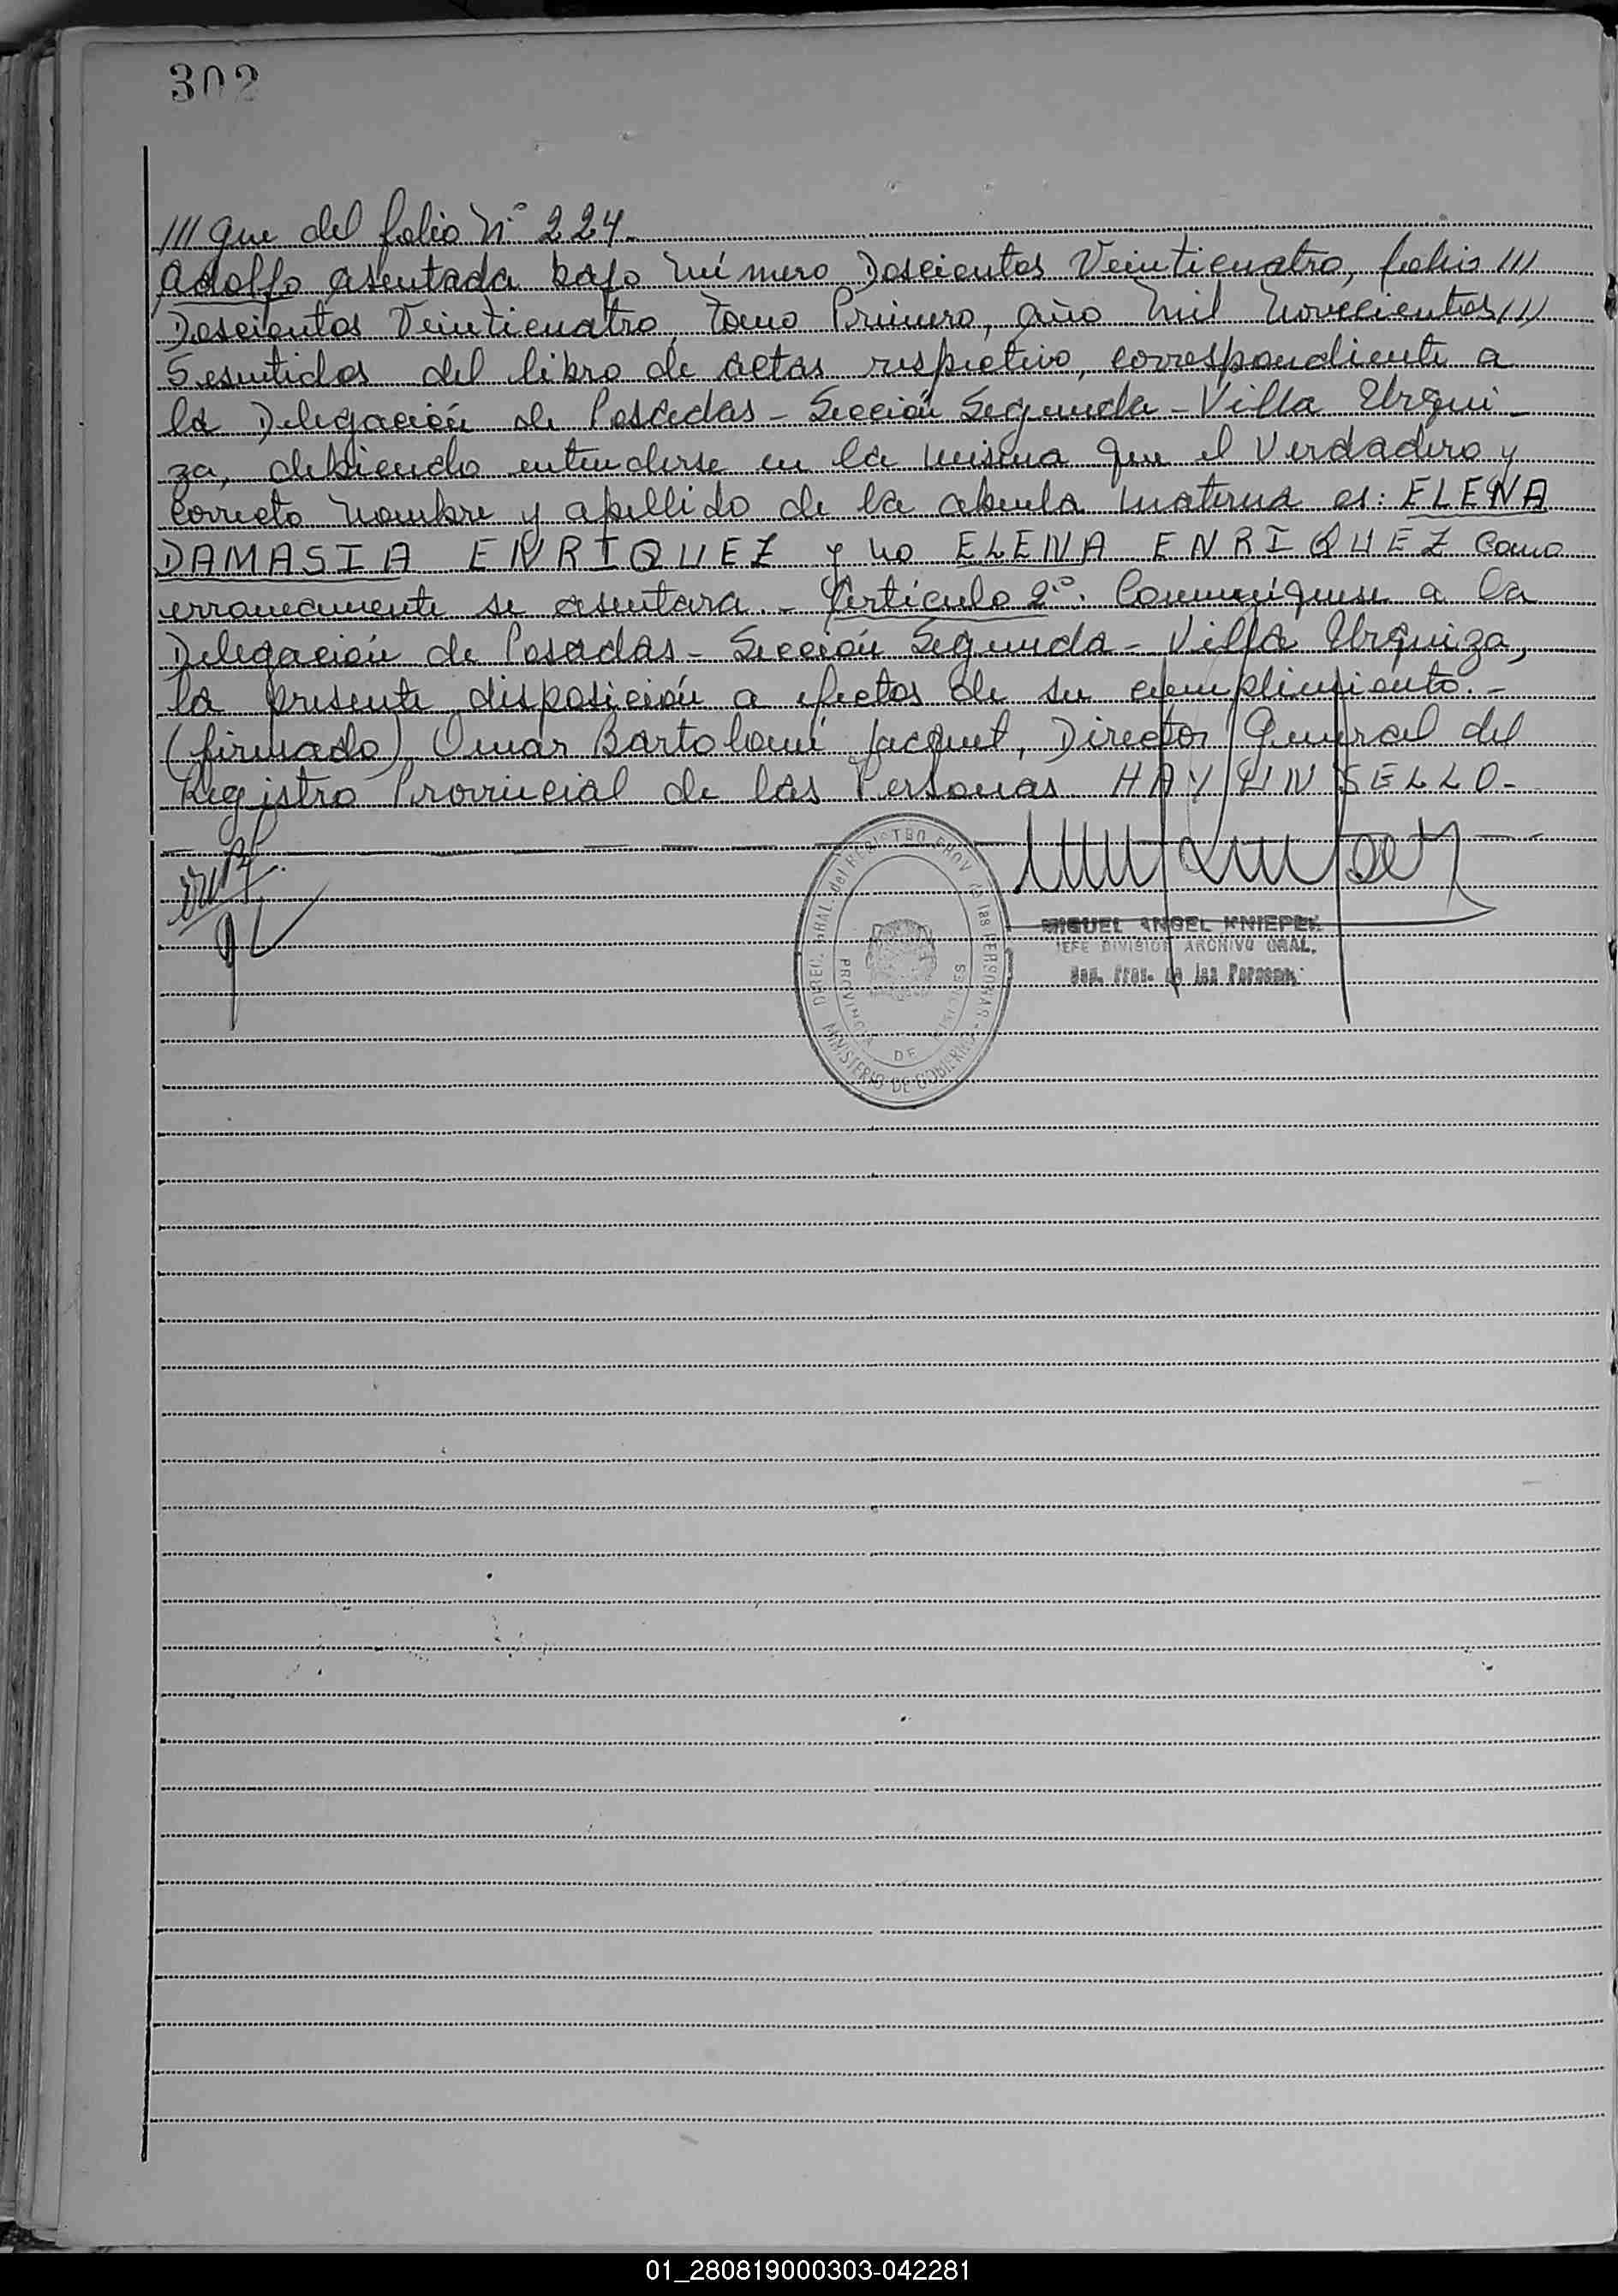 302
/// que del folio N° 224.
Adolfo asentada bajo número Doscientos Veinticuatro, folio ///
Doscientos Veinticuatro, tomo Primero, año mil novecientos ///
Sesentidos del libro de actas respectivo, correspondiente a
la Delegación de Posadas - Sección Segunda - Villa Urqui-
za, debiendo entenderse en la misma que el verdadero y
correcto nombre y apellido de la abuela materna es: ELENA
DAMASIA ENRIQUEZ y no ELENA ENRIQUEZ como
erroneamente se asentara. - Artículo 2°: Comuníquese a la
Delegación de Posadas - Sección Segunda - Villa Urquiza,
la presente disposición a efectos de su cumplimiento. -
(firmado) Omar Bartolomé Jacquet, Director General del
Registro Provincial de las Personas. HAY UN SELLO -
DIREC. GRAL. del REGISTRO PROV. de las PERSONAS -
MINISTERIO DE GOBIERNO
PROVINCIA DE MISIONES
MIGUEL ANGEL KNIEPER
JEFE DIVISION ARCHIVO GRAL.
Reg. Prov. de las Personas
01_280819000303-042281